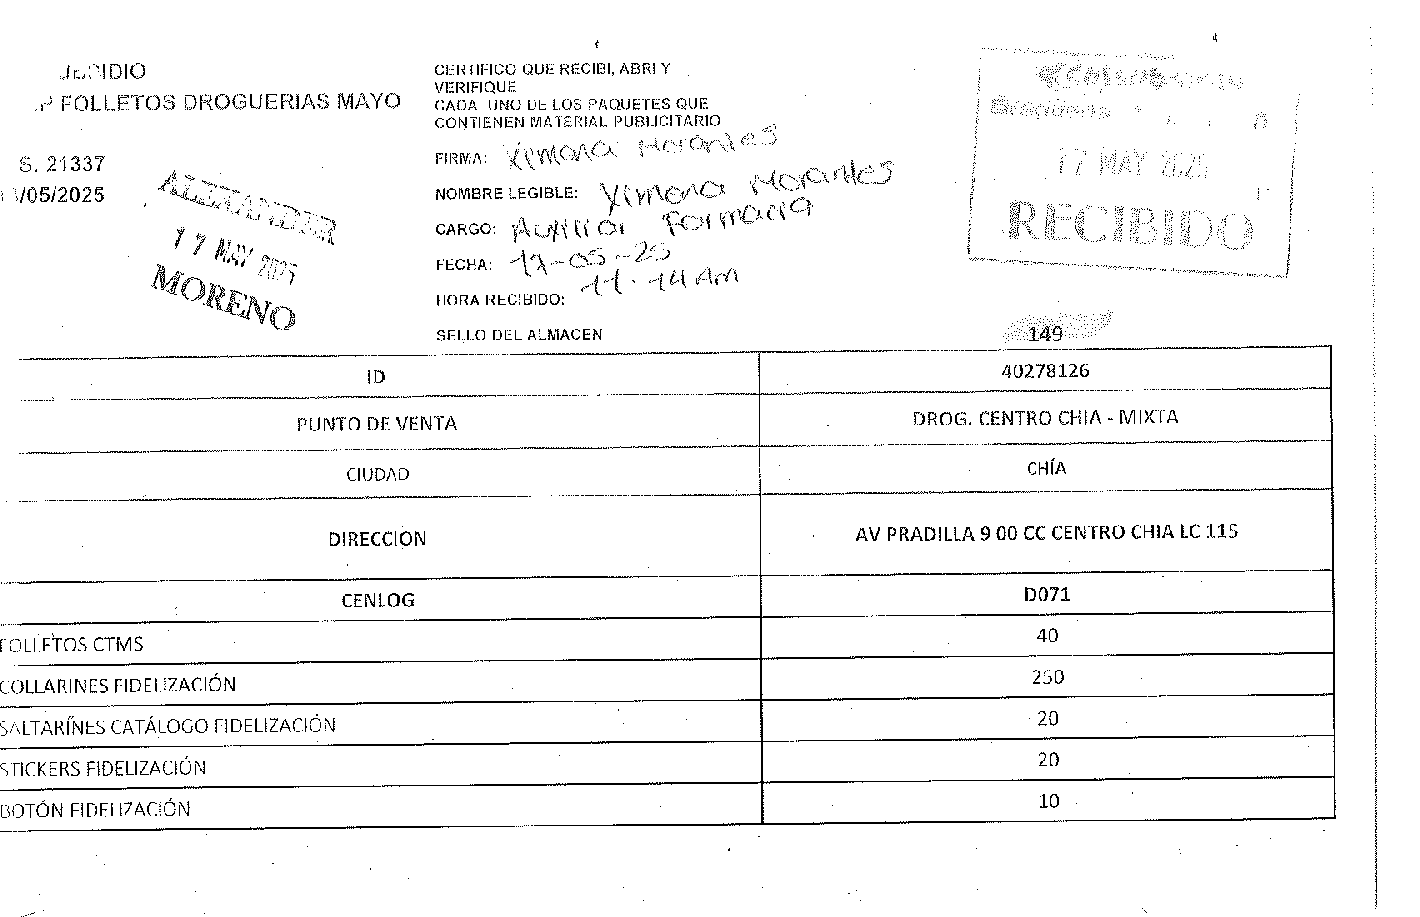 FOLLETOS DROGUERIAS MAYO
S. 21337
/05/2025
ALEXANDER
17 MAY 2025
MORENO
CERTIFICO QUE RECIBI, ABRI Y
VERIFIQUE
CADA UNO DE LOS PAQUETES QUE
CONTIENEN MATERIAL PUBLICITARIO
FIRMA: Ximena Morantes
NOMBRE LEGIBLE: Ximena Morantes
CARGO: Auxiliar Farmacia
FECHA: 17-05-25
HORA RECIBIDO: 11:14 Am
SELLO DEL ALMACEN
17 MAY 2025
RECIBIDO
149
ID 40278126
PUNTO DE VENTA DROG. CENTRO CHIA - MIXTA
CIUDAD CHÍA
DIRECCION AV PRADILLA 9 00 CC CENTRO CHIA LC 115
CENLOG D071
FOLLETOS CTMS 40
COLLARINES FIDELIZACIÓN 250
SALTARÍNES CATÁLOGO FIDELIZACIÓN 20
STICKERS FIDELIZACIÓN 20
BOTÓN FIDELIZACIÓN 10